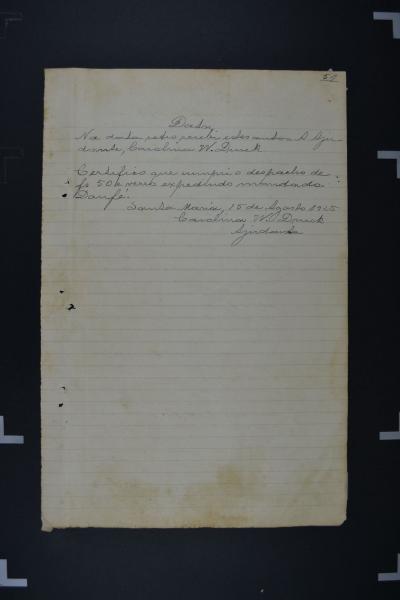 51
Data
Na data retro recebi estes autos. A Aju-
dante, Carolina W. Druck
Certifico que cumpri o despacho de
fs 50 e verso expedindo mandado
Dou fé.
Santa Maria, 15 de Agosto 1925
Carolina W. Druck
Ajudante